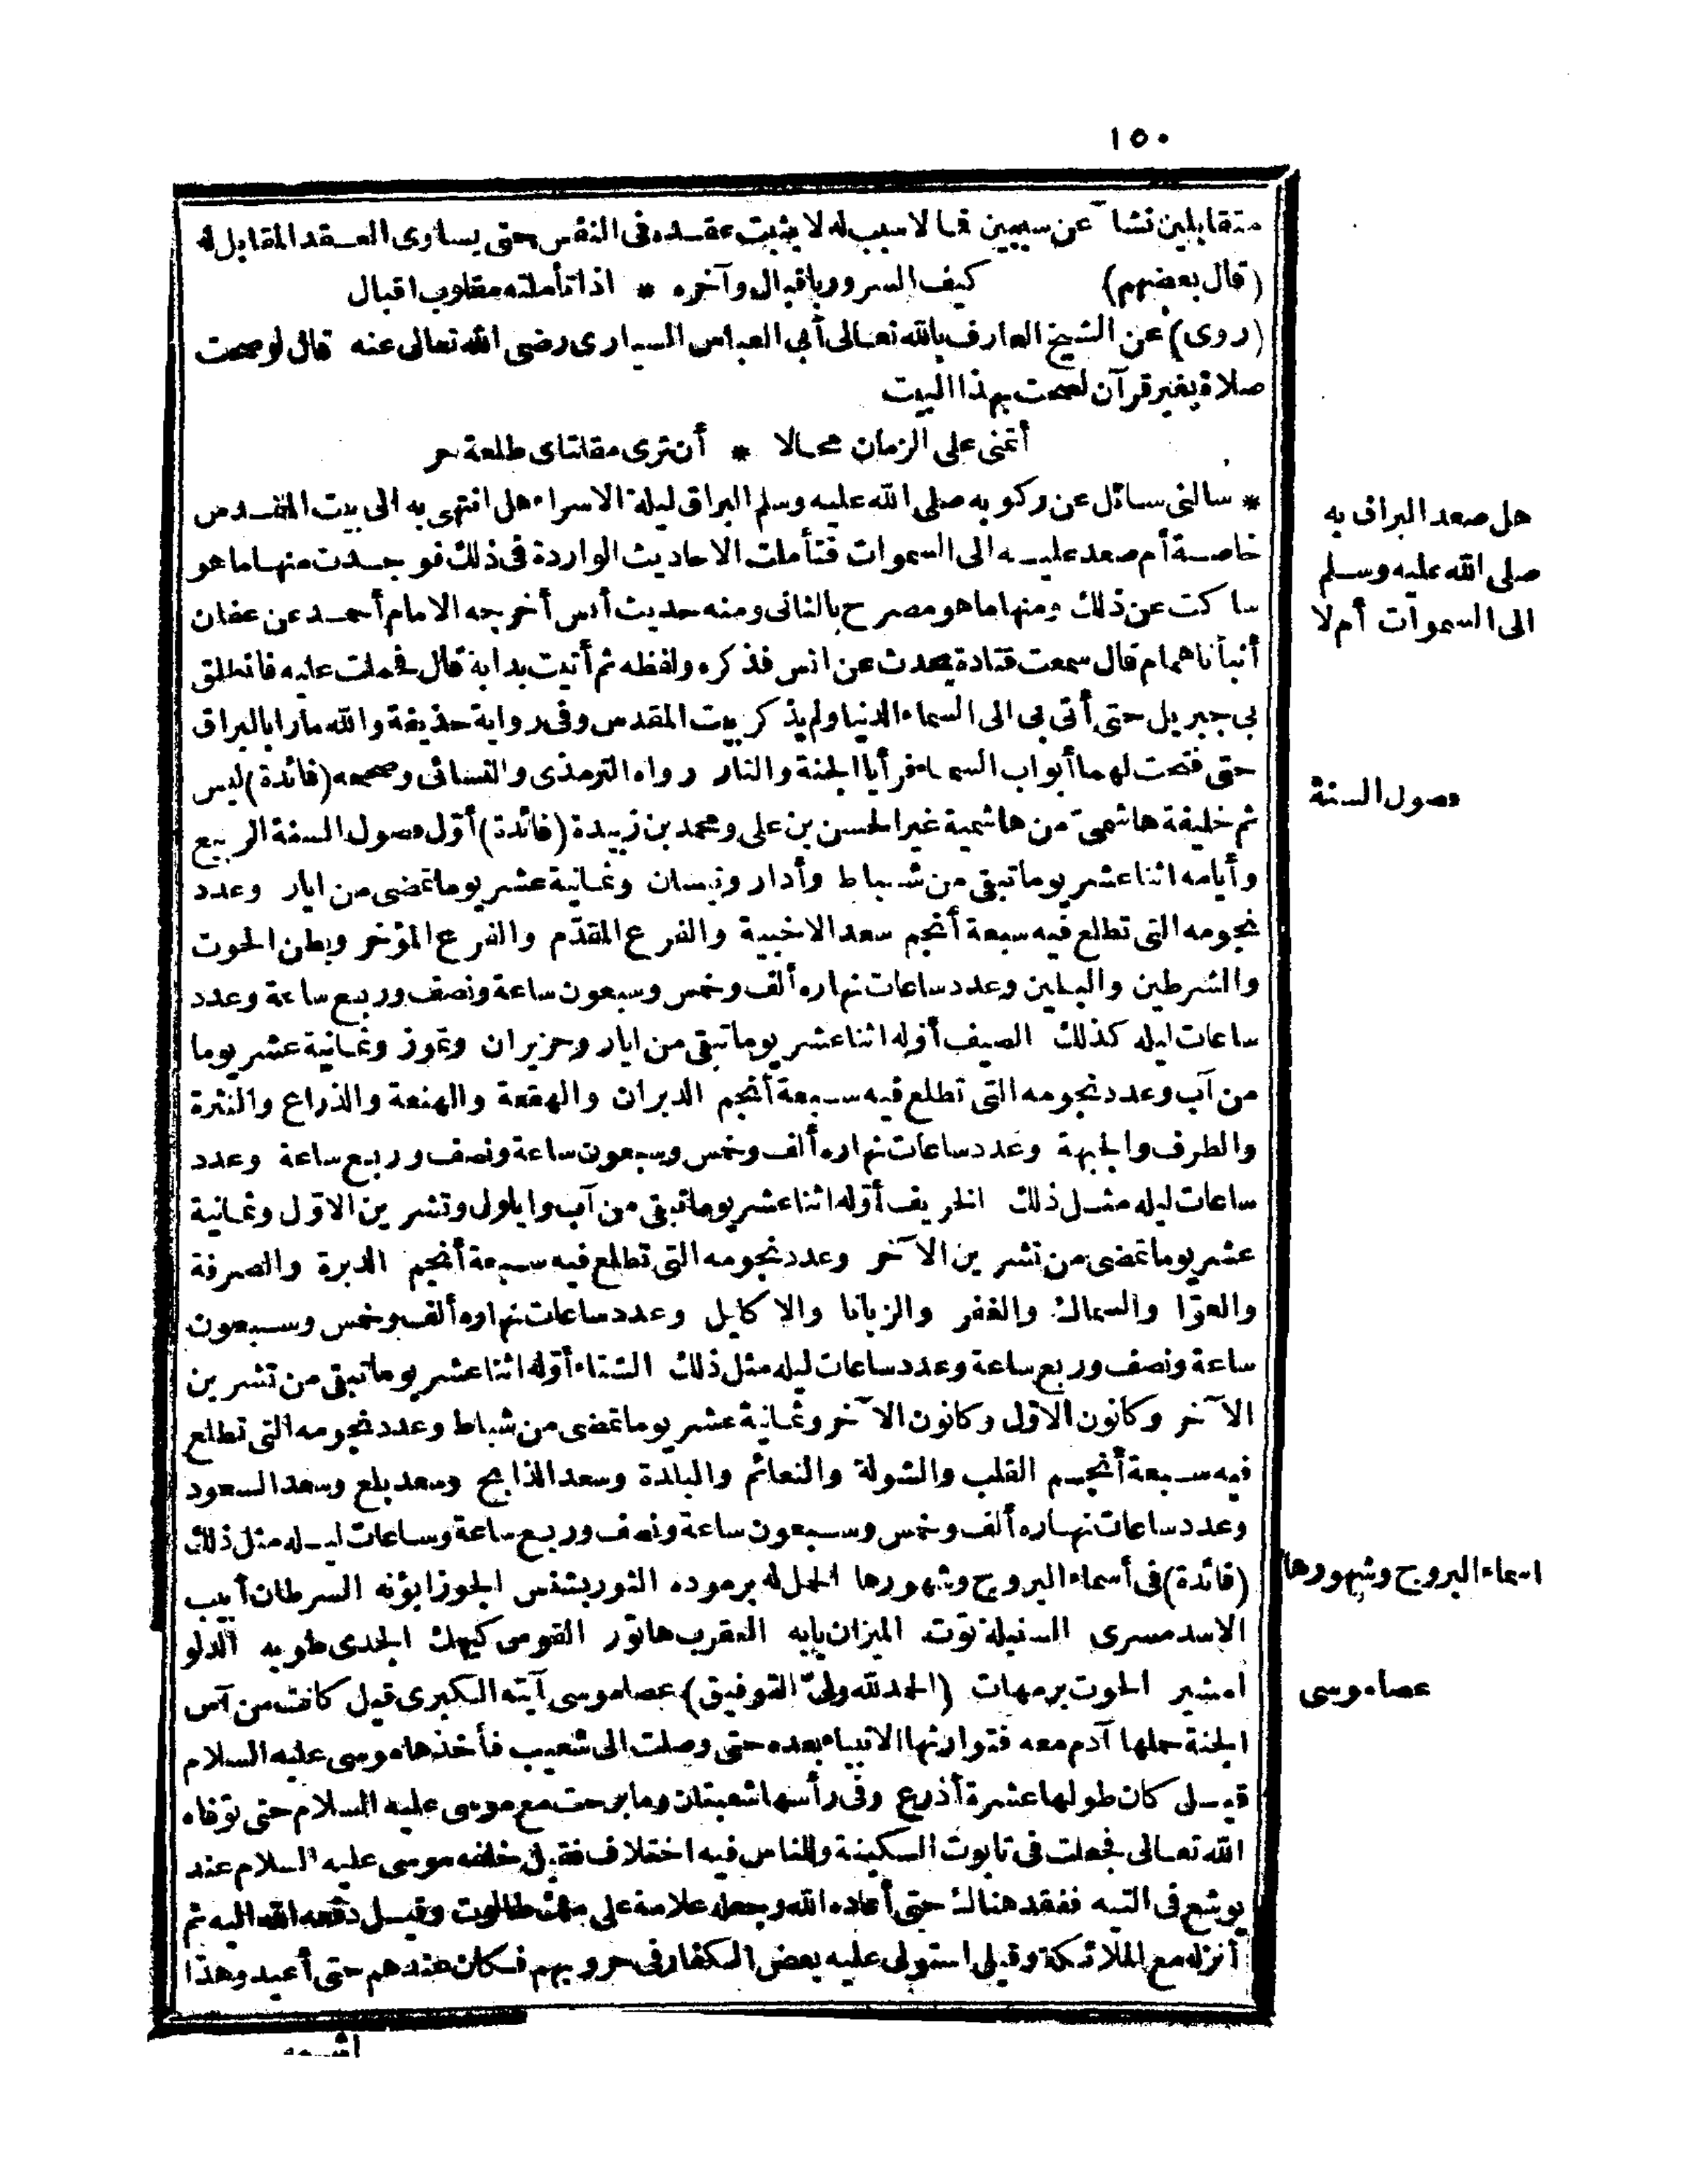 ١٥٠
متقابلين نشآ عن سببين فما لا سبب له لا يثبت عقده فى النفس حتى يساوى العقد المقابل له
(قال بعضهم) كيف السرور باقبال وآخره * اذا تأملته مقلوب اقبال
(روى) عن الشيخ العارف بالله تعالى أبى العباس السيارى رضى الله تعالى عنه قال لو صحت
صلاة بغير قرآن لصحت بهذا البيت
أتمنى على الزمان محالا * أن ترى مقلتاى طلعة حر
* سالنى سائل عن ركوبه صلى الله عليه وسلم البراق ليلة الاسراء هل انتهى به الى بيت المقدس
خاصة أم صعد عليه الى السموات فتأملت الاحاديث الواردة فى ذلك فوجدت منها ما هو
ساكت عن ذلك ومنها ما هو مصرح بالثانى ومنه حديث أنس أخرجه الامام أحمد عن عفان
أنبأنا همام قال سمعت قتادة يحدث عن انس فذكره ولفظه ثم أتيت بدابة قال فحملت عليه فانطلق
بى جبريل حتى أتى بى الى السماء الدنيا ولم يذكر بيت المقدس وفى رواية حذيفة والله ما زايا البراق
حتى فتحت لهما أبواب السماء فرأيا الجنة والنار رواه الترمذى والنسائى وصححه (فائدة) ليس
ثم خليفة هاشمىّ من هاشمية غير الحسن بن على ومحمد بن زبيدة (فائدة) أوّل فصول السنة الربيع
وأيامه اثنا عشر يوما تبقى من شباط وأدار ونيسان وثمانية عشر يوما تمضى من ايار وعدد
نجومه التى تطلع فيه سبعة أنجم سعد الاخبية والفرع المقدّم والفرع المؤخر وبطن الحوت
والشرطين والبطين وعدد ساعات نهاره ألف وخمس وسبعون ساعة ونصف وربع ساعة وعدد
ساعات ليله كذلك الصيف أوله اثنا عشر يوما تبقى من ايار وحزيران وتموز وثمانية عشر يوما
من آب وعدد نجومه التى تطلع فيه سبعة أنجم الدبران والهقعة والهنعة والذراع والنثرة
والطرف والجبهة وعدد ساعات نهاره ألف وخمس وسبعون ساعة ونصف وربع ساعة وعدد
ساعات ليله مثل ذلك الخريف أوّله اثنا عشر يوما تبقى من آب وايلول وتشرين الاوّل وثمانية
عشر يوما تمضى من تشرين الآخر وعدد نجومه التى تطلع فيه سبعة أنجم الدبرة والصرفة
والعوّا والسماك والغفر والزبانا والاكليل وعدد ساعات نهاره ألف وخمس وسبعون
ساعة ونصف وربع ساعة وعدد ساعات ليله مثل ذلك الشتاء أوّله اثنا عشر يوما تبقى من تشرين
الآخر وكانون الاوّل وكانون الآخر وثمانية عشر يوما تمضى من شباط وعدد نجومه التى تطلع
فيه سبعة أنجم القلب والشولة والنعائم والبلدة وسعد الذابح وسعد بلع وسعد السعود
وعدد ساعات نهاره ألف وخمس وسبعون ساعة ونصف وربع ساعة وساعات ليله مثل ذلك
(فائدة) فى أسماء البروج وشهورها الحمل له برموده الثور بشنس الجوزا بؤنه السرطان أبيب
الاسد مسرى السنبلة توت الميزان بابه العقرب هاتور القوس كيهك الجدى طوبه الدلو
امشير الحوت برمهات (الحمد لله ولىّ التوفيق) عصا موسى آيته الكبرى قيل كانت من آس
الجنة حملها آدم معه فتوارثها الانبياء بعده حتى وصلت الى شعيب فأخذها موسى عليه السلام
قيل كان طولها عشرة أذرع وفى رأسها شعبتان وما برحت مع موسى عليه السلام حتى توفاه
الله تعالى فجعلت فى تابوت السكينة وللناس فيه اختلاف فقيل خلفه موسى عليه السلام عند
يوشع فى التيه ففقد هنالك حتى أعاده الله وجعله علامة على ملك طالوت وقيل دفعه الله اليه ثم
أنزله مع الملائكة وقيل استولى عليه بعض الكفار فى حروبهم فكان عندهم حتى أعيد وهذا
هل صعد البراق به
صلى الله عليه وسلم
الى السموات أم لا
فصول السنة
اسماء البروج وشهورها
عصاء موسى